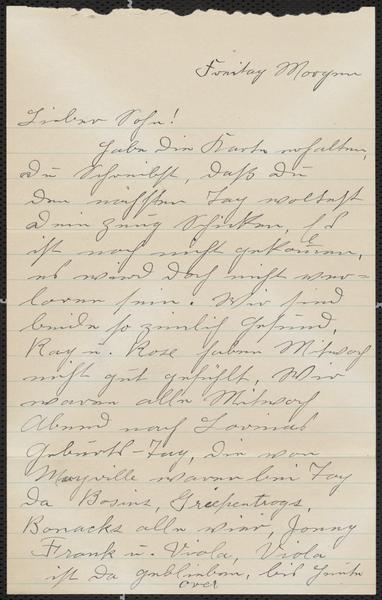 Freitag Morgen
Lieber Sohn!
Habe die Karte erhalten,
du Schreibst, daß du
den nächsten Tag woltest
dein zeug Schicken, Es
ist noch nicht gekommen,
es wird doch nicht ver=
loren sein. Wir sind
beide so zimlich Gesund,
Ray u. Rose haben Mitwoch
nicht gut gefühlt, Wir
waren alle Mitwoch
Abend nach Lorinas
Geburts-Tag, die von
Mayville waren bei Tag
da Bosins, Griepentrogs,
Bonacks alle wier, Jonny
Frank u. Viola, Viola
ist da geblieben, bis Heute
over